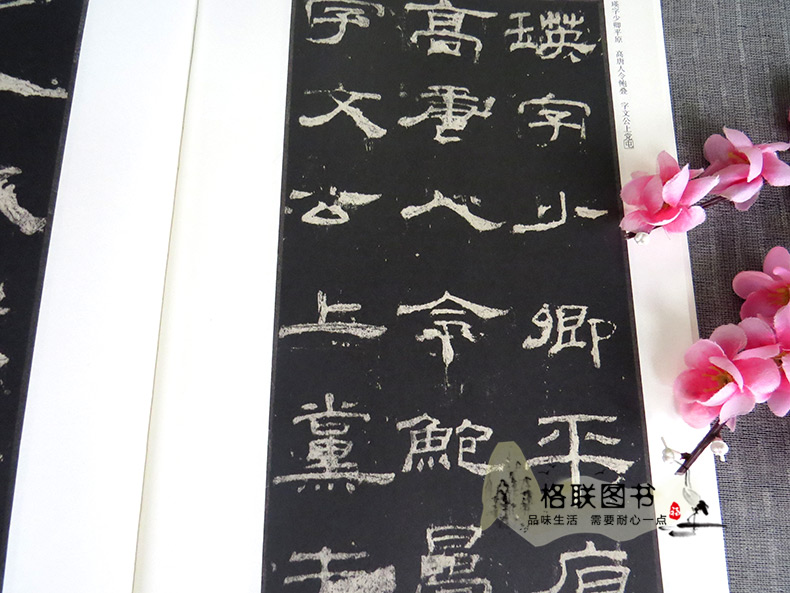 瑛字少卿平原 高唐人令鲍叠 字文公上党屯
瑛字少卿平原
高唐人令鮑疊
字文公上黨屯
格联图书
品味生活 需要耐心一点